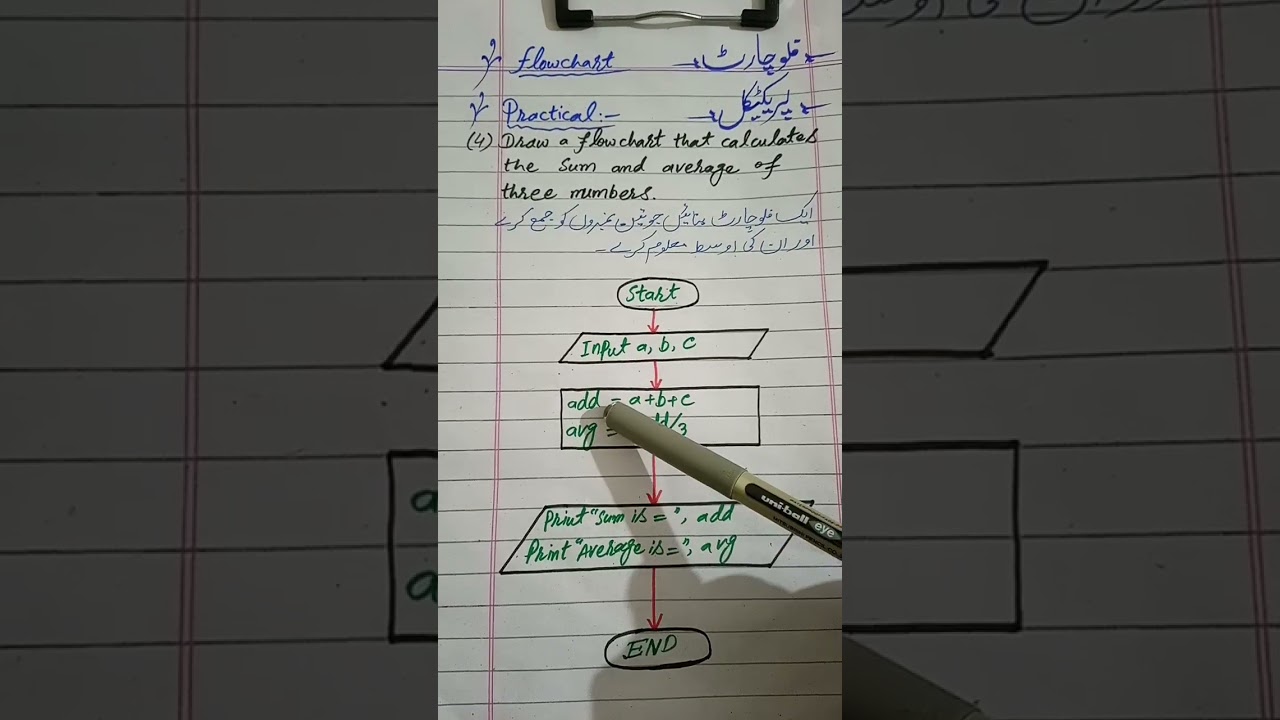 Flowchart فلوچارٹ
Practical:- پریکٹیکل
(4) Draw a flowchart that calculates
the sum and average of
three numbers.
ایک فلوچارٹ بنائیں جو تین نمبروں کو جمع کرے
اور ان کی اوسط معلوم کرے۔
Start
Input a, b, c
add = a+b+c
avg = /3
Print "Sum is = ", add
Print "Average is = ", avg
END
uni-ball eye